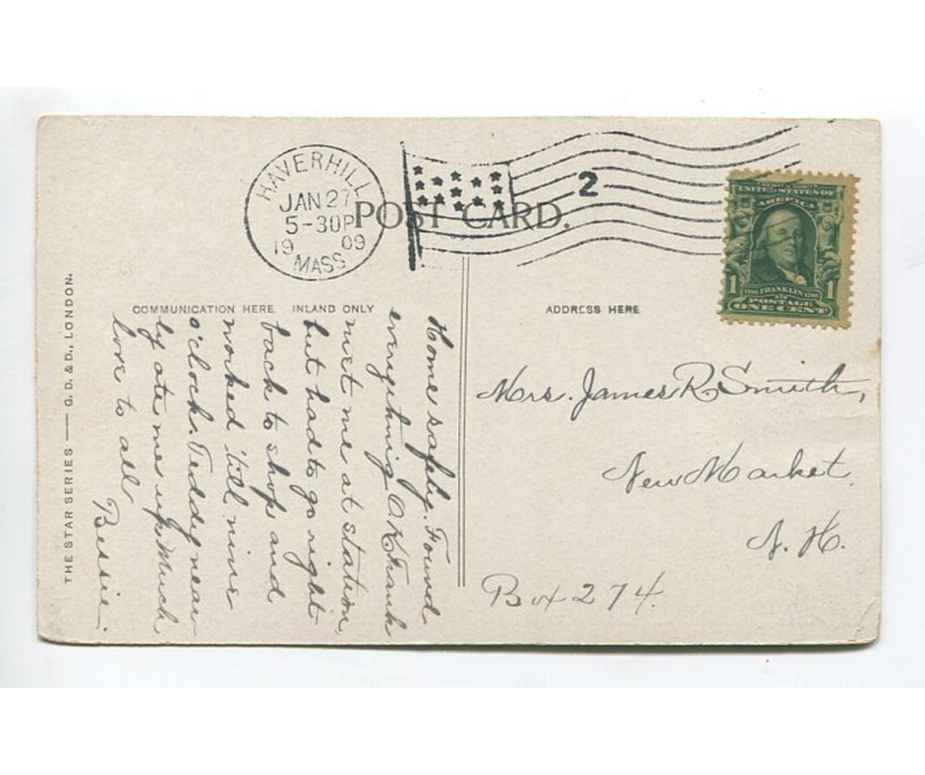 HAVERHILL
JAN 27
5-30P
19 09
MASS
2
POST CARD.
UNITED STATES OF
AMERICA
1 FRANKLIN 1
POSTAGE
ONE CENT
THE STAR SERIES — G. D. & D., LONDON.
COMMUNICATION HERE. INLAND ONLY
ADDRESS HERE
Home safely. Found
everything OK Frank
met me at station,
but had to go right
back to shop and
worked 'till nine
o'clock. Teddy near-
ly ate me up. Much
love to all
Bessie.
Mrs. James R. Smith,
New Market,
N. H.
Box 274.